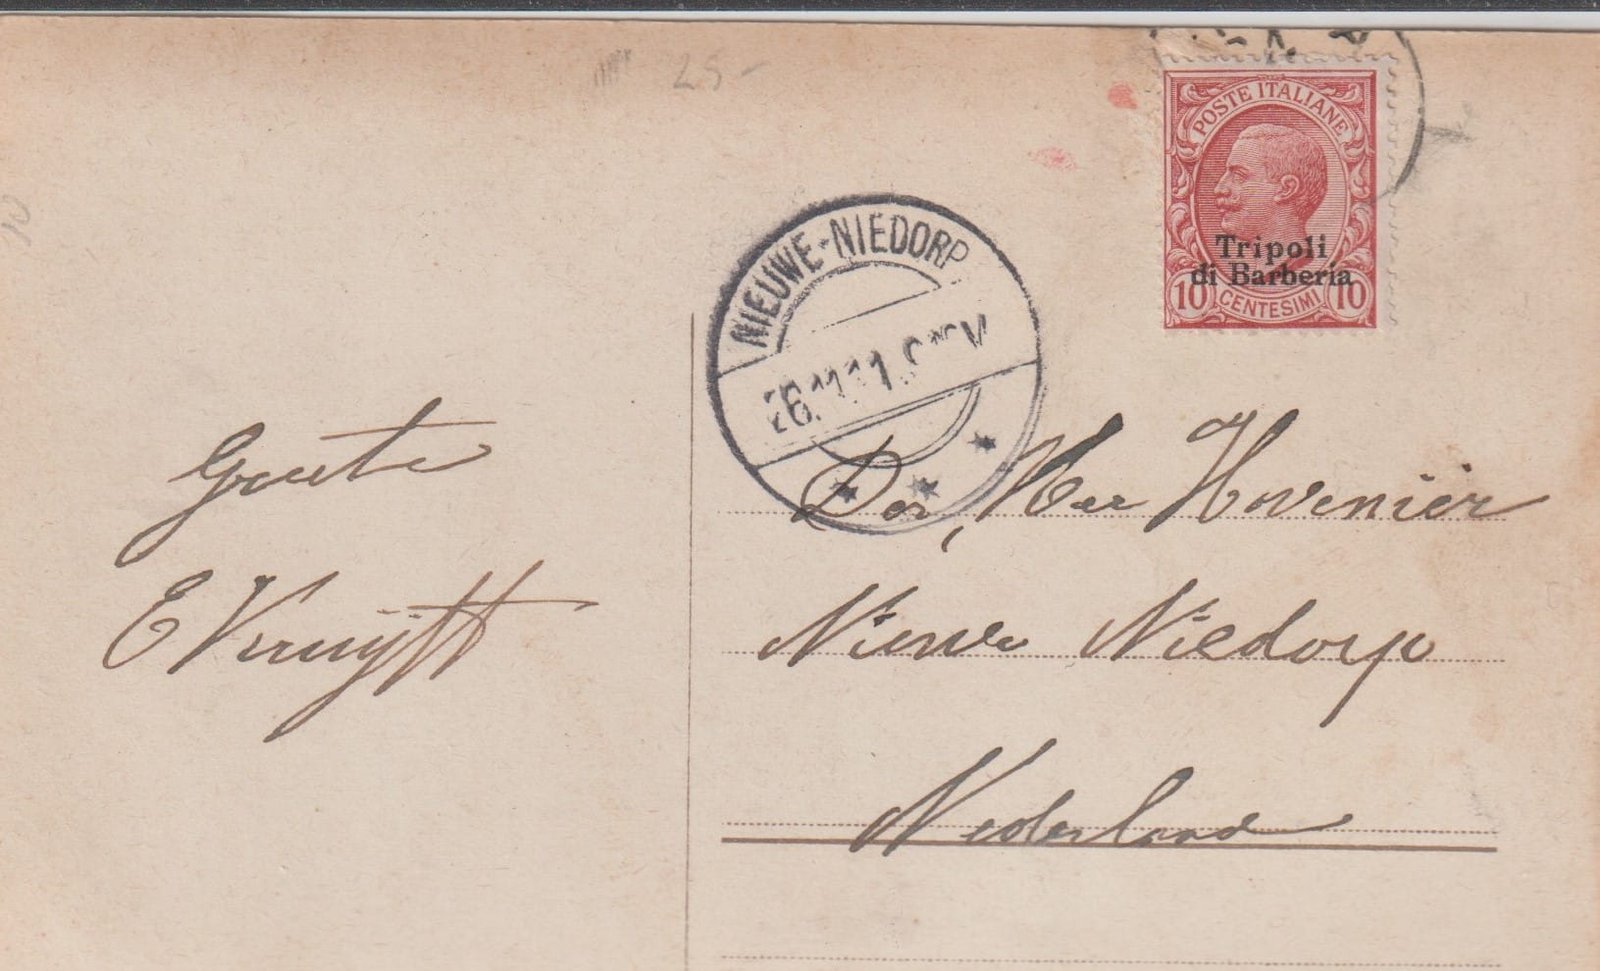 25-
10
POSTE ITALIANE
Tripoli
di Barberia
10 CENTESIMI 10
NIEUWE-NIEDORP
26.11.11. V
Groete
E Kruyff
Hovenier
Nieuwe Niedorp
Nederland